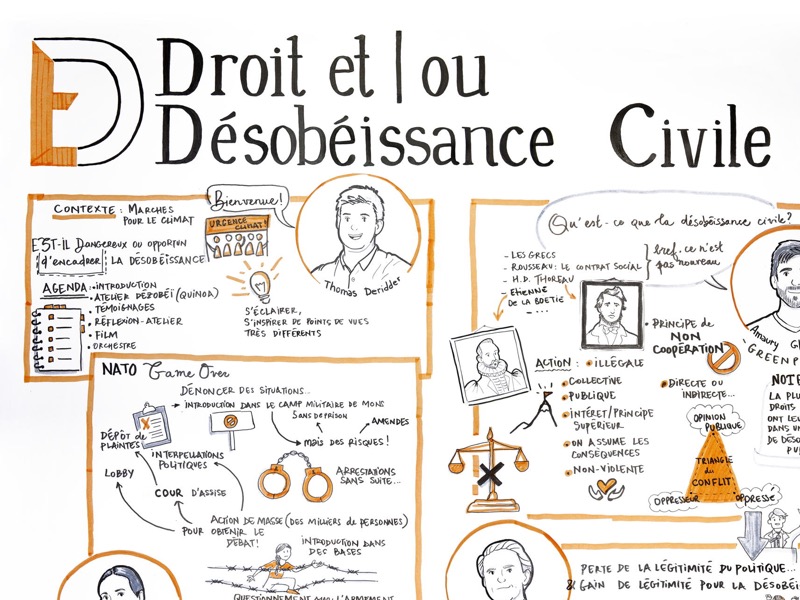 ED
Droit et | ou
Désobéissance Civile
CONTEXTE : MARCHES
POUR LE CLIMAT
Bienvenue!
URGENCE
CLIMAT!
EST-IL DANGEREUX OU OPPORTUN
d'encadrer LA DÉSOBÉISSANCE
AGENDA: • INTRODUCTION
• ATELIER DÉZOBÉI (QUINOA)
• TÉMOIGNAGES
• RÉFLEXION-ATELIER
• FILM
• ORCHESTRE
S'ÉCLAIRER,
S'INSPIRER DE POINTS DE VUES
TRÈS DIFFÉRENTS
Thomas Deridder
NATO Game Over
DÉNONCER DES SITUATIONS...
→ INTRODUCTION DANS LE CAMP MILITAIRE DE MONS
SANS DE PRISON
AMENDES
→ mais DES RISQUES !
DÉPÔT de
PLAINTES
INTERPELLATIONS
POLITIQUES
LOBBY
COUR D'ASSISE
ARRESTATIONS
SANS SUITE...
ACTION DE MASSE (DES MILLIERS DE PERSONNES)
POUR OBTENIR LE
DÉBAT!
INTRODUCTION DANS
DES BASES
QUESTIONNEMENT SUR L'ARMEMENT
Qu'est-ce que la désobéissance civile?
- LES GRECS
- ROUSSEAU: LE CONTRAT SOCIAL
- H.D. THOREAU
- ETIENNE
DE LA BOETIE
- ...
bref, ce n'est
pas nouveau
Amaury
GREENP
• PRINCIPE de
NON
COOPÉRATION
ACTION : • ILLÉGALE
• COLLECTIVE
• PUBLIQUE
• INTÉRÊT/PRINCIPE
SUPÉRIEUR
• ON ASSUME LES
CONSÉQUENCES
• NON-VIOLENTE
• DIRECTE OU
INDIRECTE...
OPINION
PUBLIQUE
TRIANGLE
du
CONFLIT
OPPRESSEUR
OPPRESSÉ
NOTE
LA PLU
DROITS
ONT LE
DANS UN
DE DÉSO
PU
PERTE DE LA LÉGITIMITÉ DU POLITIQUE...
& GAIN DE LÉGITIMITÉ POUR LA DÉSOBÉI